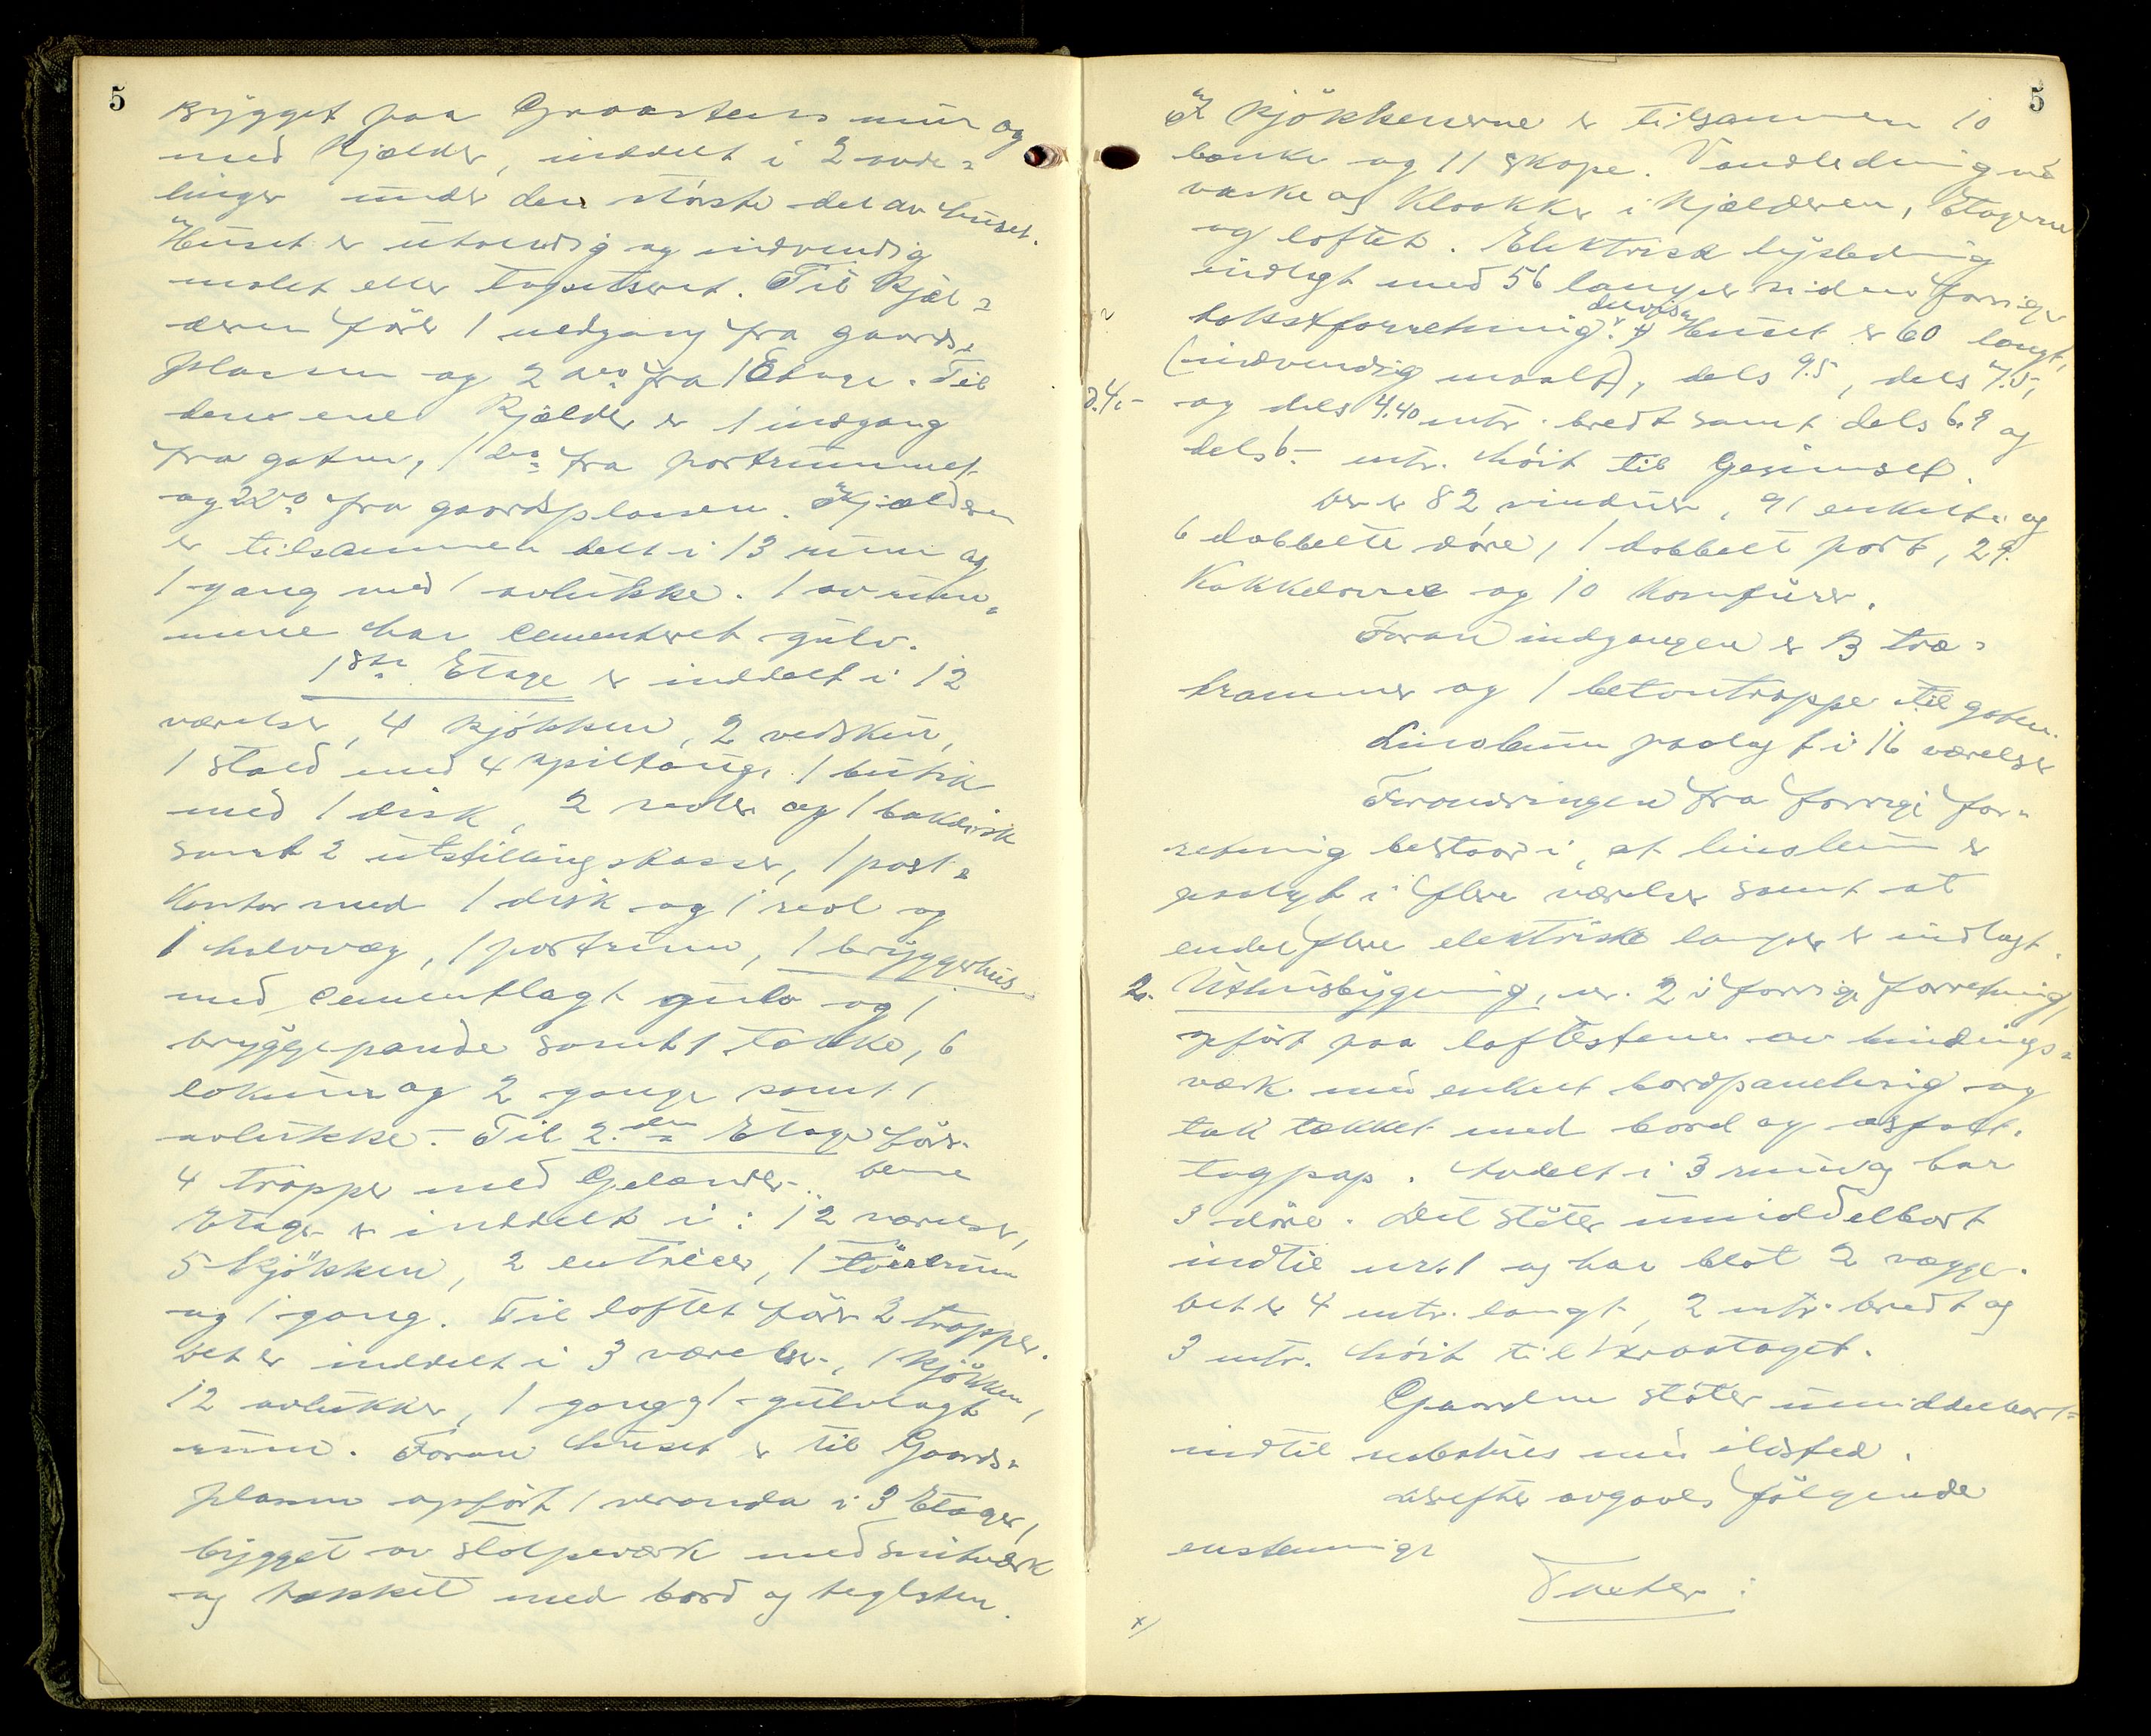 5
bygget paa Graastens mur og
med Kjælder, inddelt i 2 avde=
linger under den største del av huset.
Huset er utvendig og indvendig
malet eller tapetseret. Til Kjæl=
deren fører 1 nedgang fra gaards=
plassen og 2 do fra 1 Etage. Til
den ene Kjælder er 1 indgang
fra gaten, 1 do fra portrummet
og 2 do fra gaardsplassen. Kjælderen
er tilsammen delt i 13 rum og
1 gang med 1 avlukke. 1 av rum=
mene har cementeret gulv.
1ste Etage er inddelt i 12
værelser, 4 kjøkken, 2 vedskur,
1 stald med 4 spiltaug, 1 butik
med 1 disk, 2 reoler og 1 bakdisk
samt 2 utstillingskasser, 1 post=
Kontor med 1 disk og 1 reol og
1 halvvæg, 1 portrum, 1 bryggerhus
med cementlagt gulv og 1
bryggepande samt 1 takke, 6
lokum og 2 gange samt 1
avlukke. Til 2den Etage fører
4 trapper med Gelænder. Denne
Etage er inddelt i: 12 værelser,
5 Kjøkken, 2 entreer, 1 tørrerum
og 1 gang. Til loftet fører 2 trapper.
Det er inddelt i 3 værelser, 1 kjøkken,
12 avlukker, 1 gang og 1 gulvlagt
rum. Foran huset er til Gaards=
plassen opført 1 veranda i 3 Etager,
bygget av stolpeværk med snitværk
og tækket med bord og teglsten.
5
I Kjøkkenerne er tilsammen 10
bænke og 11 skape. Vandledning m
vaske og Klosetter i Kjælderen, Etagerne
og loftet. Elektrisk lysledning
indlagt med 56 lamper siden forrige
delvis
takstforretning. Huset er 60 langt,
(indvendig maalt), dels 9.5, dels 7.5,
og dels 4.40 mtr. bredt samt dels 6.9 og
dels 6.- mtr. høit til Gesimset.
Der er 82 vinduer, 91 enkelte og
6 dobbelte døre, 1 dobbelt port, 29
Kakkelovne og 10 Komfurer.
Foran indgangen er 3 træ=
trammer og 1 betontrappe til gaten.
Linoleum paalagt i 16 værelser
Forandringen fra forrige for=
retning bestaar i, at linoleum er
paalagt i flere værelser samt at
endel flere elektriske lamper er indlagt.
2. Uthusbygning, nr. 2 i forrige forretning,
opført paa løftestene av bindings=
værk med enkelt bordpanelering og
tak tækket med bord og asfalt=
tagpap. Avdelt i 3 rum og har
3 døre. Det støter umiddelbart
indtil nr. 1 og har blot 2 vægge.
Det er 4 mtr. langt, 2 mtr. bredt og
3 mtr. høit til straataget.
Gaarden støter umiddelbart
indtil nabohus med ildsted.
Derefter avgaves følgende
enstemmige
Takster:
x/